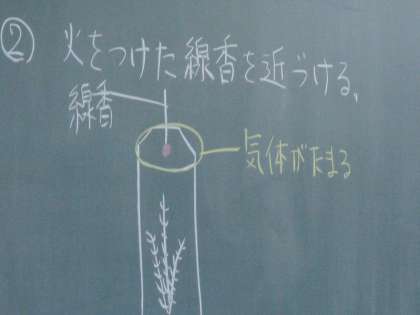 ② 火をつけた線香を近づける。
線香
気体がたまる